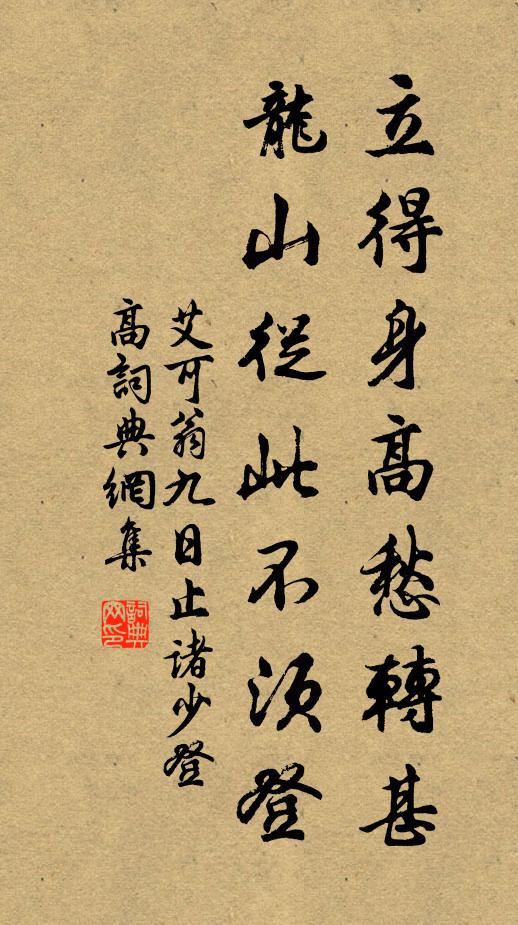 立得身高愁轉甚
龍山從此不須登
艾可翁九日止諸少登
高詞典網集
詞典网印